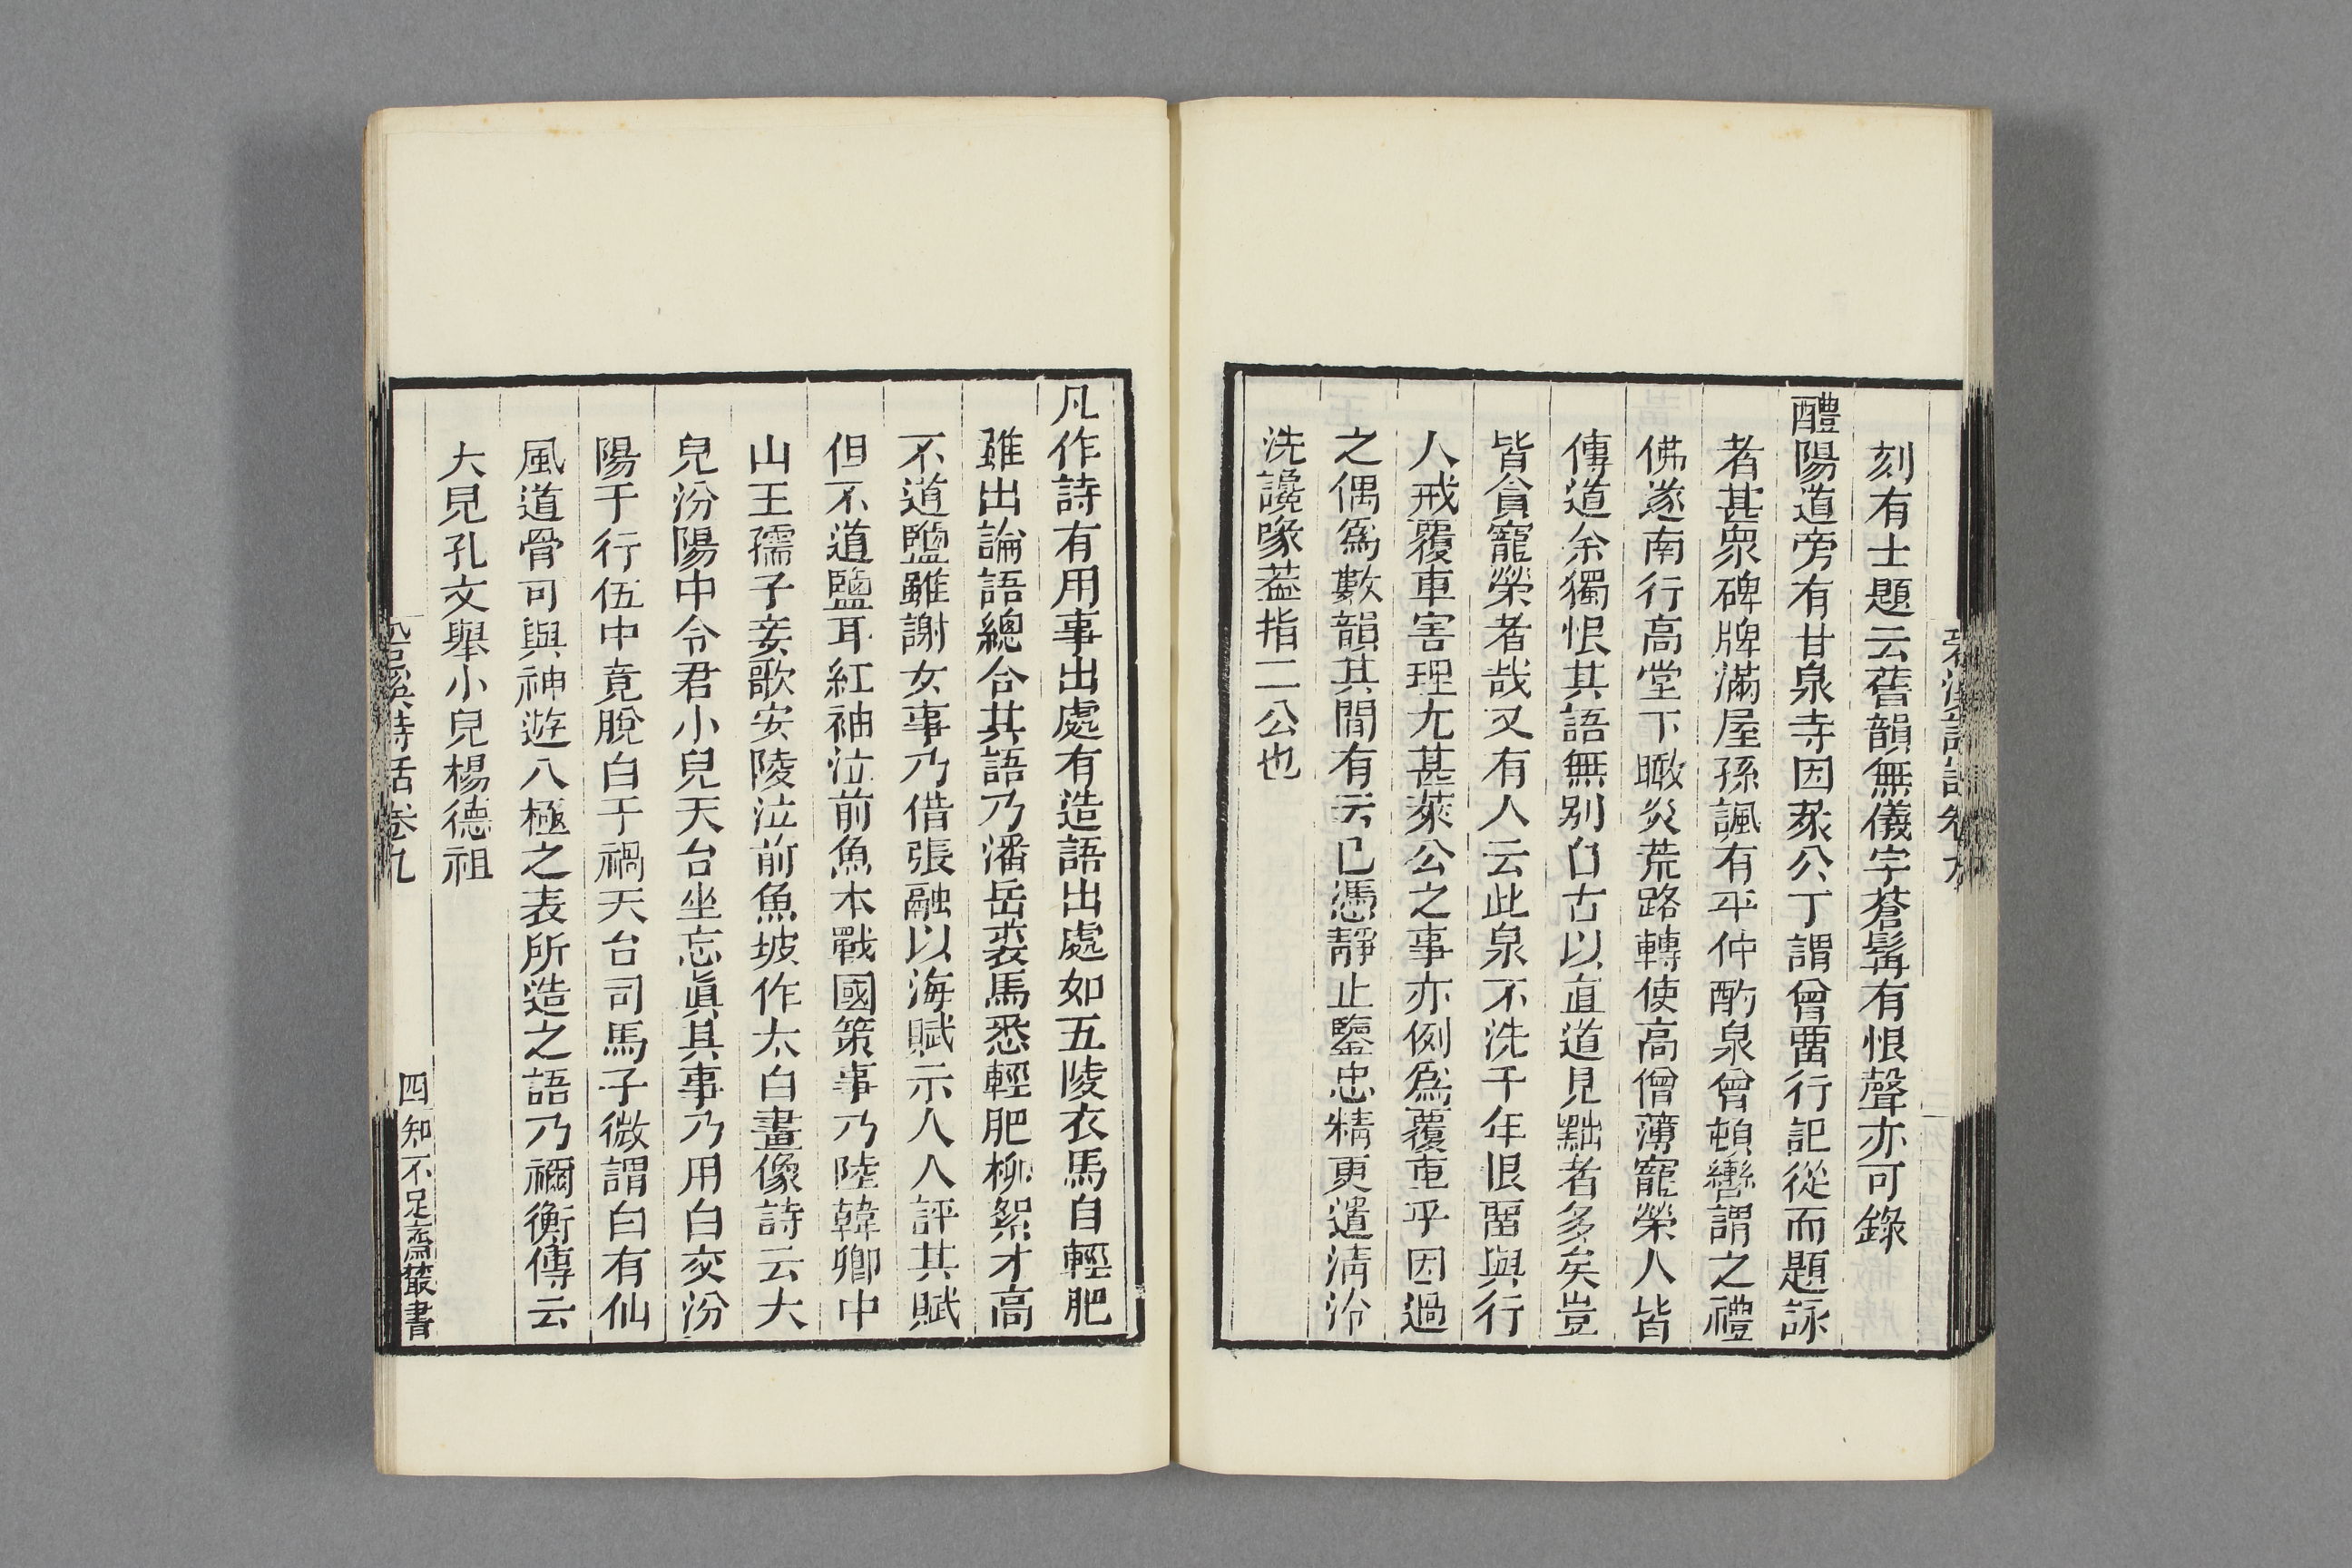 刻有士題云舊韻無儀字蒼髯有恨聲亦可錄
醴陽道旁有甘泉寺因萊公丁謂曾畱行記從而題詠
者甚衆碑牌滿屋孫諷有平仲酌泉曾頓轡謂之禮
佛遂南行高堂下瞰炎荒路轉使高僧薄寵榮人皆
傳道余獨恨其語無別白古以直道見黜者多矣豈
皆貪寵榮者哉又有人云此泉不洗千年恨畱與行
人戒覆車害理尤甚萊公之事亦例爲覆車乎因過
之偶爲數韻其間有云已憑靜止鑒忠精更遣淸泠
洗讒喙葢指二公也
凡作詩有用事出處有造語出處如五陵衣馬自輕肥
雖出論語總合其語乃潘岳裘馬悉輕肥柳絮才高
不道鹽雖謝女事乃借張融以海賦示人人評其賦
但不道鹽耳紅袖泣前魚本戰國策事乃陸韓卿中
山王孺子妾歌安陵泣前魚坡作太白畫像詩云大
兒汾陽中令君小兒天台坐忘眞其事乃用白交汾
陽于行伍中竟脫白于禍天台司馬子微謂白有仙
風道骨可與神遊八極之表所造之語乃禰衡傳云
大兒孔文舉小兒楊德祖
溪詩話卷九
四 知不足齋叢書